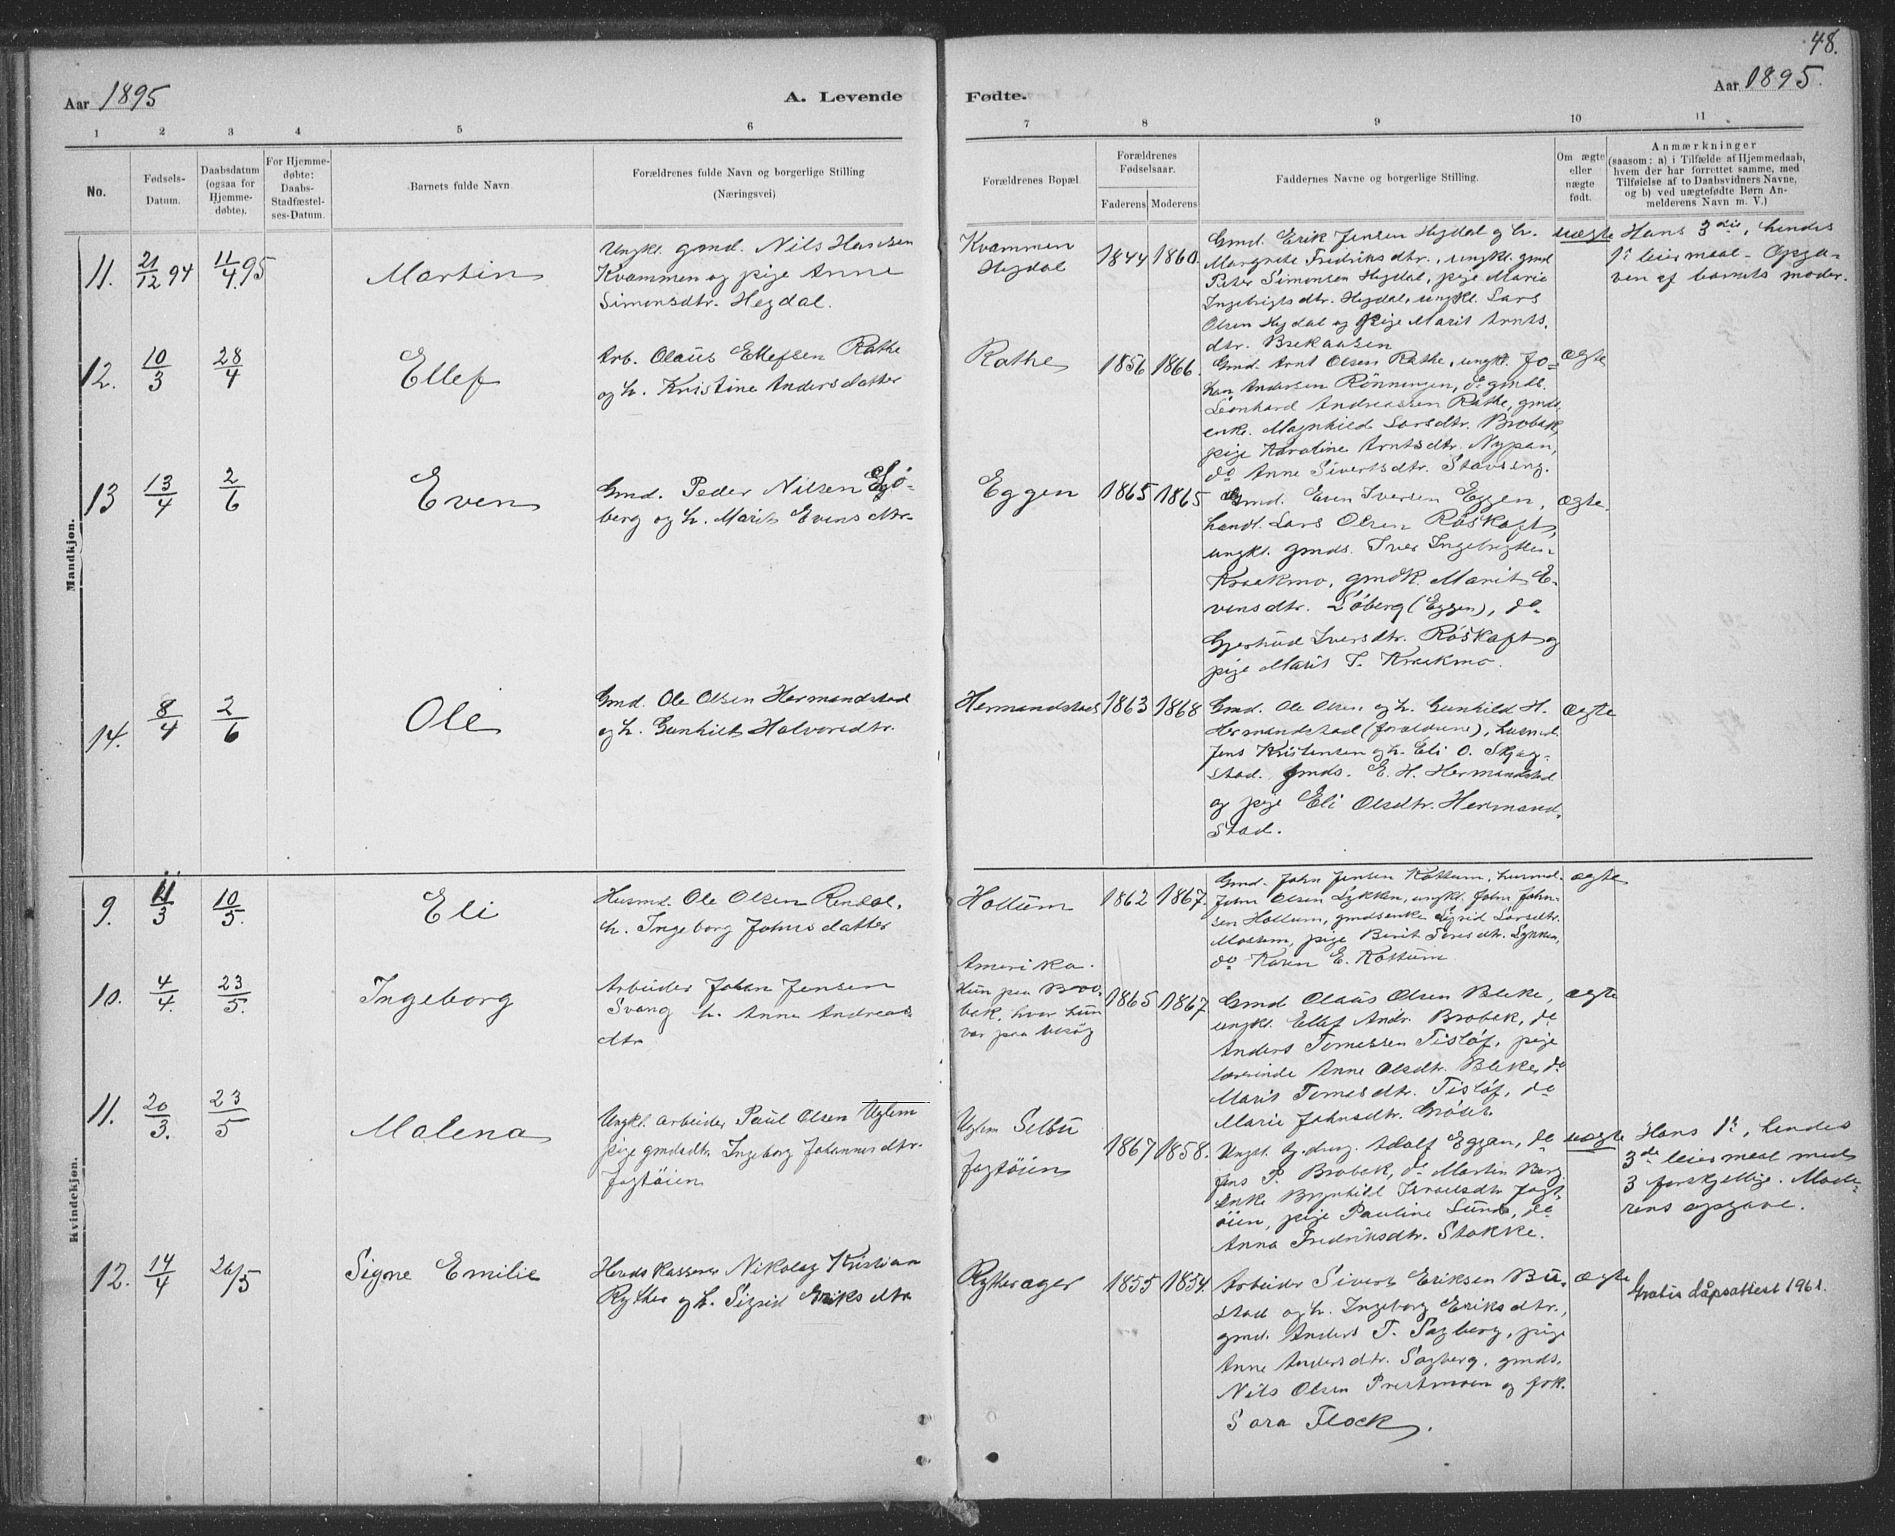 48.
Aar 1895
A. Levende Fødte.
Aar 1895.
1 2 3 4 5 6 7 8 9 10 11
No.
Fødsels-
Datum.
Daabsdatum
(ogsaa for
Hjemme-
døbte).
For Hjemme-
døbte:
Daabs-
Stadfæstel-
ses-Datum.
Barnets fulde Navn
Forældrenes fulde Navn og borgerlige Stilling
(Næringsvei)
Forældrenes Bopæl.
Forældrenes
Fødselsaar.
Faderens Moderens
Faddernes Navne og borgerlige Stilling.
Om ægte
eller
uægte
født.
Anmærkninger
(saasom: a) i Tilfælde af Hjemmedaab,
hvem der har forrettet samme, med
Tilføielse af to Daabsvidners Navne,
og b) ved uægtefødte Børn An-
melderens Navn m. V.)
Mandkjøn.
11. 21/12 94 11/4 95 Martin
Ungkl. gmd. Nils Hansen
Kvammen og pige Anne
Simonsdtr. Hegdal.
Kvammen
Hegdal
1844 1860.
Gmd. Erik Jensen Hegdal og h.
Margrete Fredriksdtr., ungkl. gmd
Peter Simonsen Hegdal, pige Marie
Ingebrigtsdtr. Hegdal, ungkl. Lars
Olsen Hegdal og pige Marit Arnts.
dtr. Brekaasen
uægte
Hans 3die, hendes
1ste leiermaal - Opga-
ven af barnets moder.
12. 10/3 28/4 Ellef
Arb. Olaus Ellefsen Rathe
og h. Kristine Andersdatter
Rathe 1856 1866.
Gmd. Arnt Olsen Rathe, ungkl. Jo-
han Andersen Rönningen, do gmds.
Leonhard Andreassen Rathe, gmds.
enke. Magnhild Larsdtr. Brobak,
pige Karoline Arntsdtr. Nypan,
do Anne Sivertsdtr. Stavseng.
ægte
13 13/4 2/6 Even
Gmd. Peder Nilsen Sø-
berg og h. Marit Evensdtr.
Eggen 1865 1865
Gmd. Even Iversen Eggen,
handl. Lars Olsen Röskaft,
ungkl. gmds. Iver Ingebrigtsen
Kraakmo, gmdk. Marit E-
vensdtr. Söberg (Eggen), do
Gjertrud Iversdtr. Röskaft og
pige Marit I. Kraakmo.
ægte.
14. 8/4 2/6 Ole
Gmd. Ole Olsen Hermandstad
og h. Gunhild Halvorsdtr.
Hermandstad 1863 1868
Gmd. Ole Olsen og h. Gunhild H.
Hermandstad (forældrene), husmd.
Jens Kristensen og h. Eli O. Skjeg-
stad. gmds. E. H. Hermandstad
og pige Eli Olsdtr. Hermand.
stad.
ægte
Kvindekjøn.
9. 11/3 10/5 Eli
Husmd. Ole Olsen Rendal,
h. Ingeborg Johnsdatter
Hollum 1862 1867.
Gmd. John Jensen Kottum, husmd.
John Olsen Lykken, ungkl. John John-
sen Hollum, gmdsenke Sigrid Larsdtr.
Mossum, pige Berit Toresdtr. Lykken,
do Karen E. Kottum
ægte
10. 4/4. 23/5. Ingeborg
Arbeider Johan Jensen
Svang h. Anna Andreas
dtr
Amerika.
Hun paa Bro-
bak, hvor hun
var paa besøg
1865 1867
Gmd Olaus Olsen Bleke,
ungkl. Ellef Andr. Brobak, do
Anders Tomassen Tislöf, pige
lærerinde Anne Olsdtr. Bleke, do
Marit Tomesdtr. Tislöf, do
Marie Johnsdtr. Gröset
ægte
11. 20/3. 23/5 Malena
Ungkl. arbeider Paul Olsen Uglem
pige gmdsdtr. Ingeborg Johannesdtr.
Fogtöien
Uglem Selbu
Fogtöien
1867 1858.
Ungkl. Adolf Eggan, do
Jens P. Brobak, do Martin Berg
Enke Brynhild Israelsdtr Fogt-
öien, pige Pauline Lunde, do
Anna Fredriksdtr. Stokke.
uægte
Hans 1ste, hendes
3de leiermaal med
3 forskjellige. Mode-
rens opgave.
12. 14/4 26/5 Signe Emilie
Herreds Kasserer Nikolay Kristian
Rytter og h. Sigrid Eriksdtr
Rytterager 1855 1854.
Arbeider Sivert Eriksen Bu-
stad og h. Ingeborg Eriksdtr.,
gmd. Anders T. Sagberg, pige
Anne Andersdtr. Sagberg, gmds.
Nils Olsen Prestmoen og frk.
Sara Flock.
ægte
Gratis dåpsattest 1961.